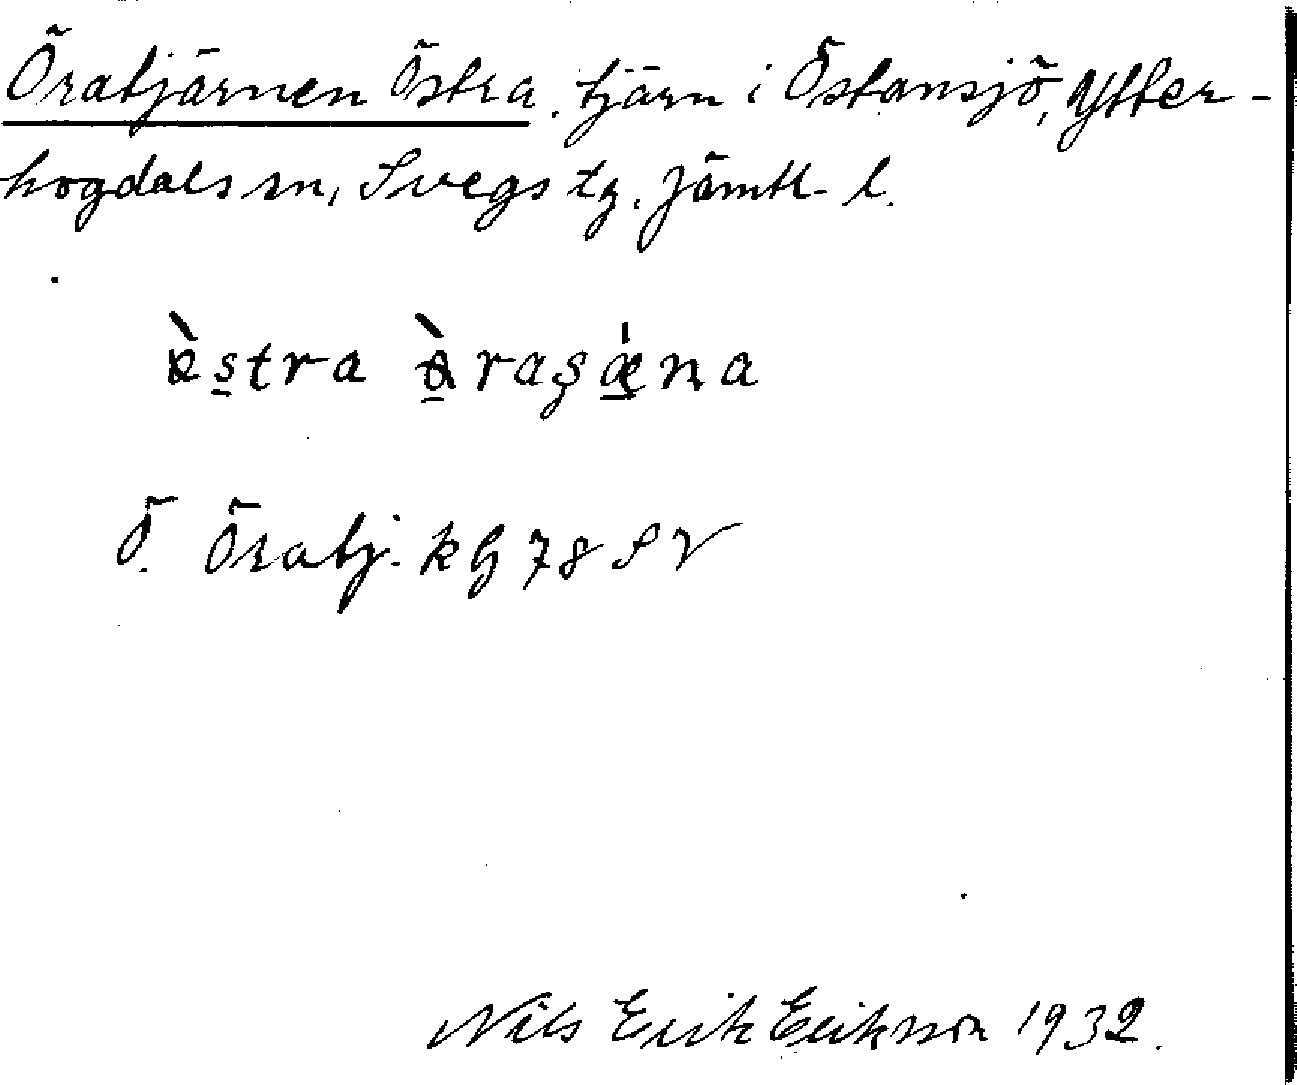 Öratjärnen Östra. tjärn i Östansjö, Ytter-
hogdals sn, Svegs tg. Jämtl. l.
Ö. Öratj. kg 78 SV
Nils Erik Erikson 1932.